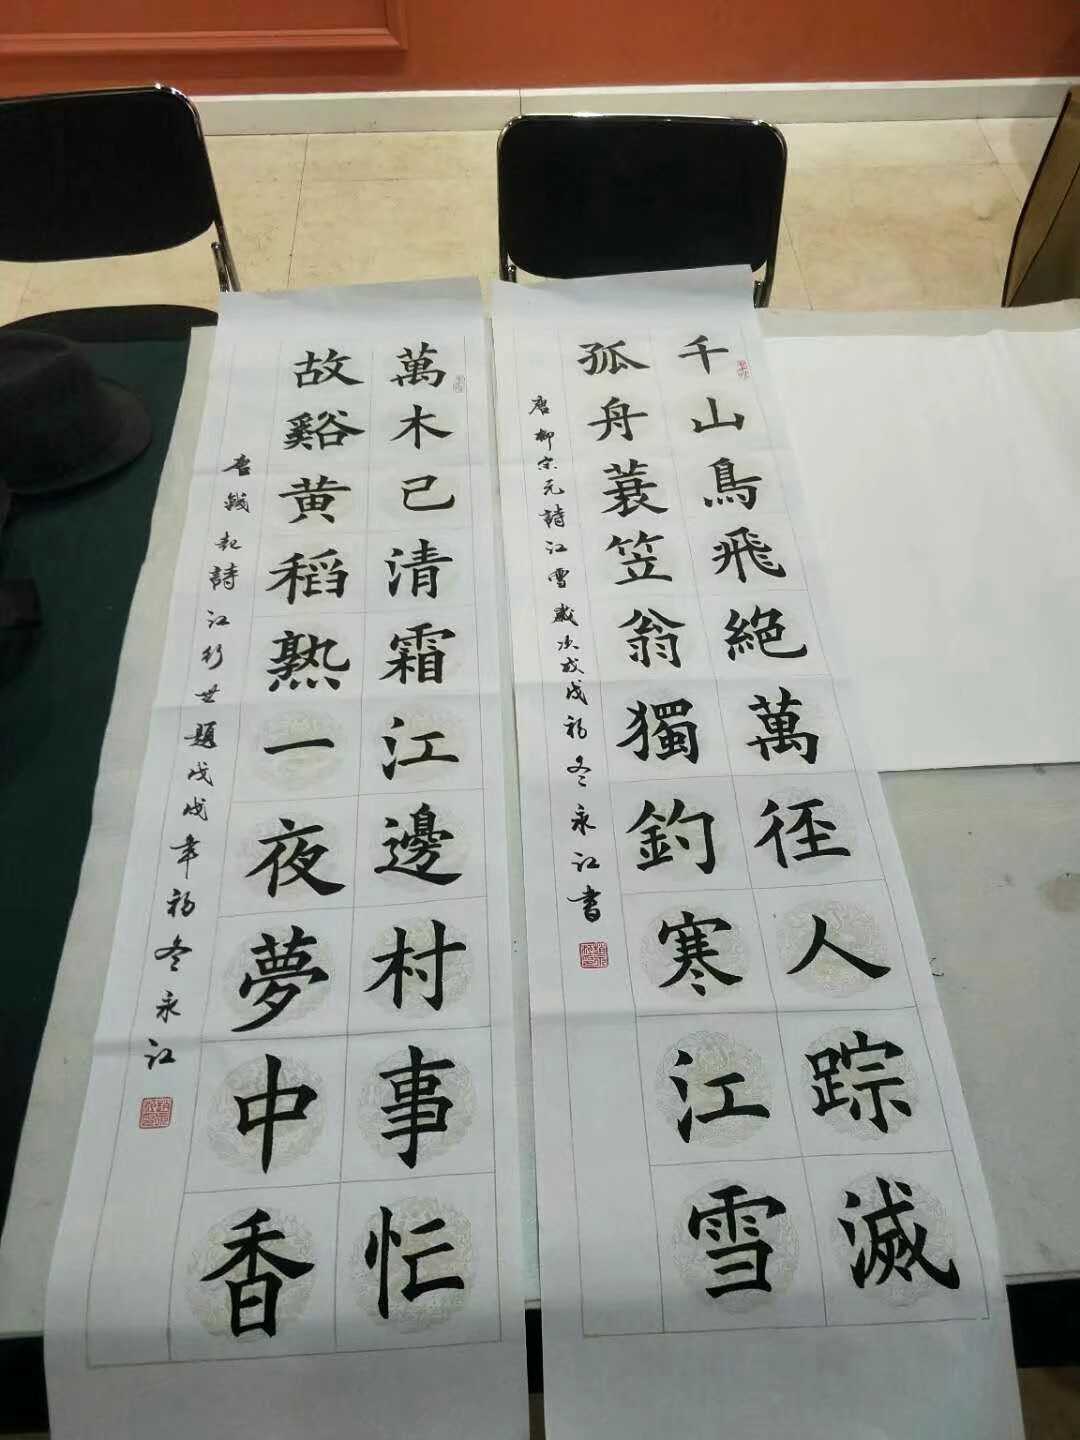 千山鳥飛絕萬徑人踪滅
孤舟蓑笠翁獨釣寒江雪
唐柳宗元詩江雪歲次戊戌初冬永江書
萬木已清霜江邊村事忙
故谿黃稻熟一夜夢中香
唐錢起詩江行無題戊戌年初冬永江